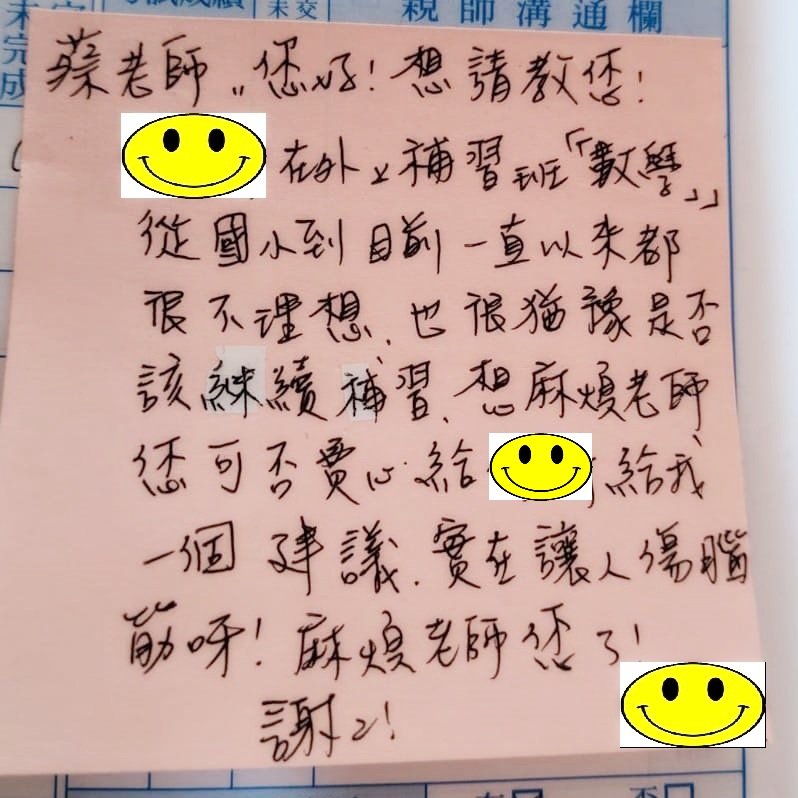 未完成
未交
親師溝通欄
蔡老師,您好!想請教您!
在外上補習班「數學」
從國小到目前一直以來都
很不理想,也很猶豫是否
該練續補習,想麻煩老師
您可否費心給 給我
一個建議,實在讓人傷腦
筋呀!麻煩老師您了!
謝謝!